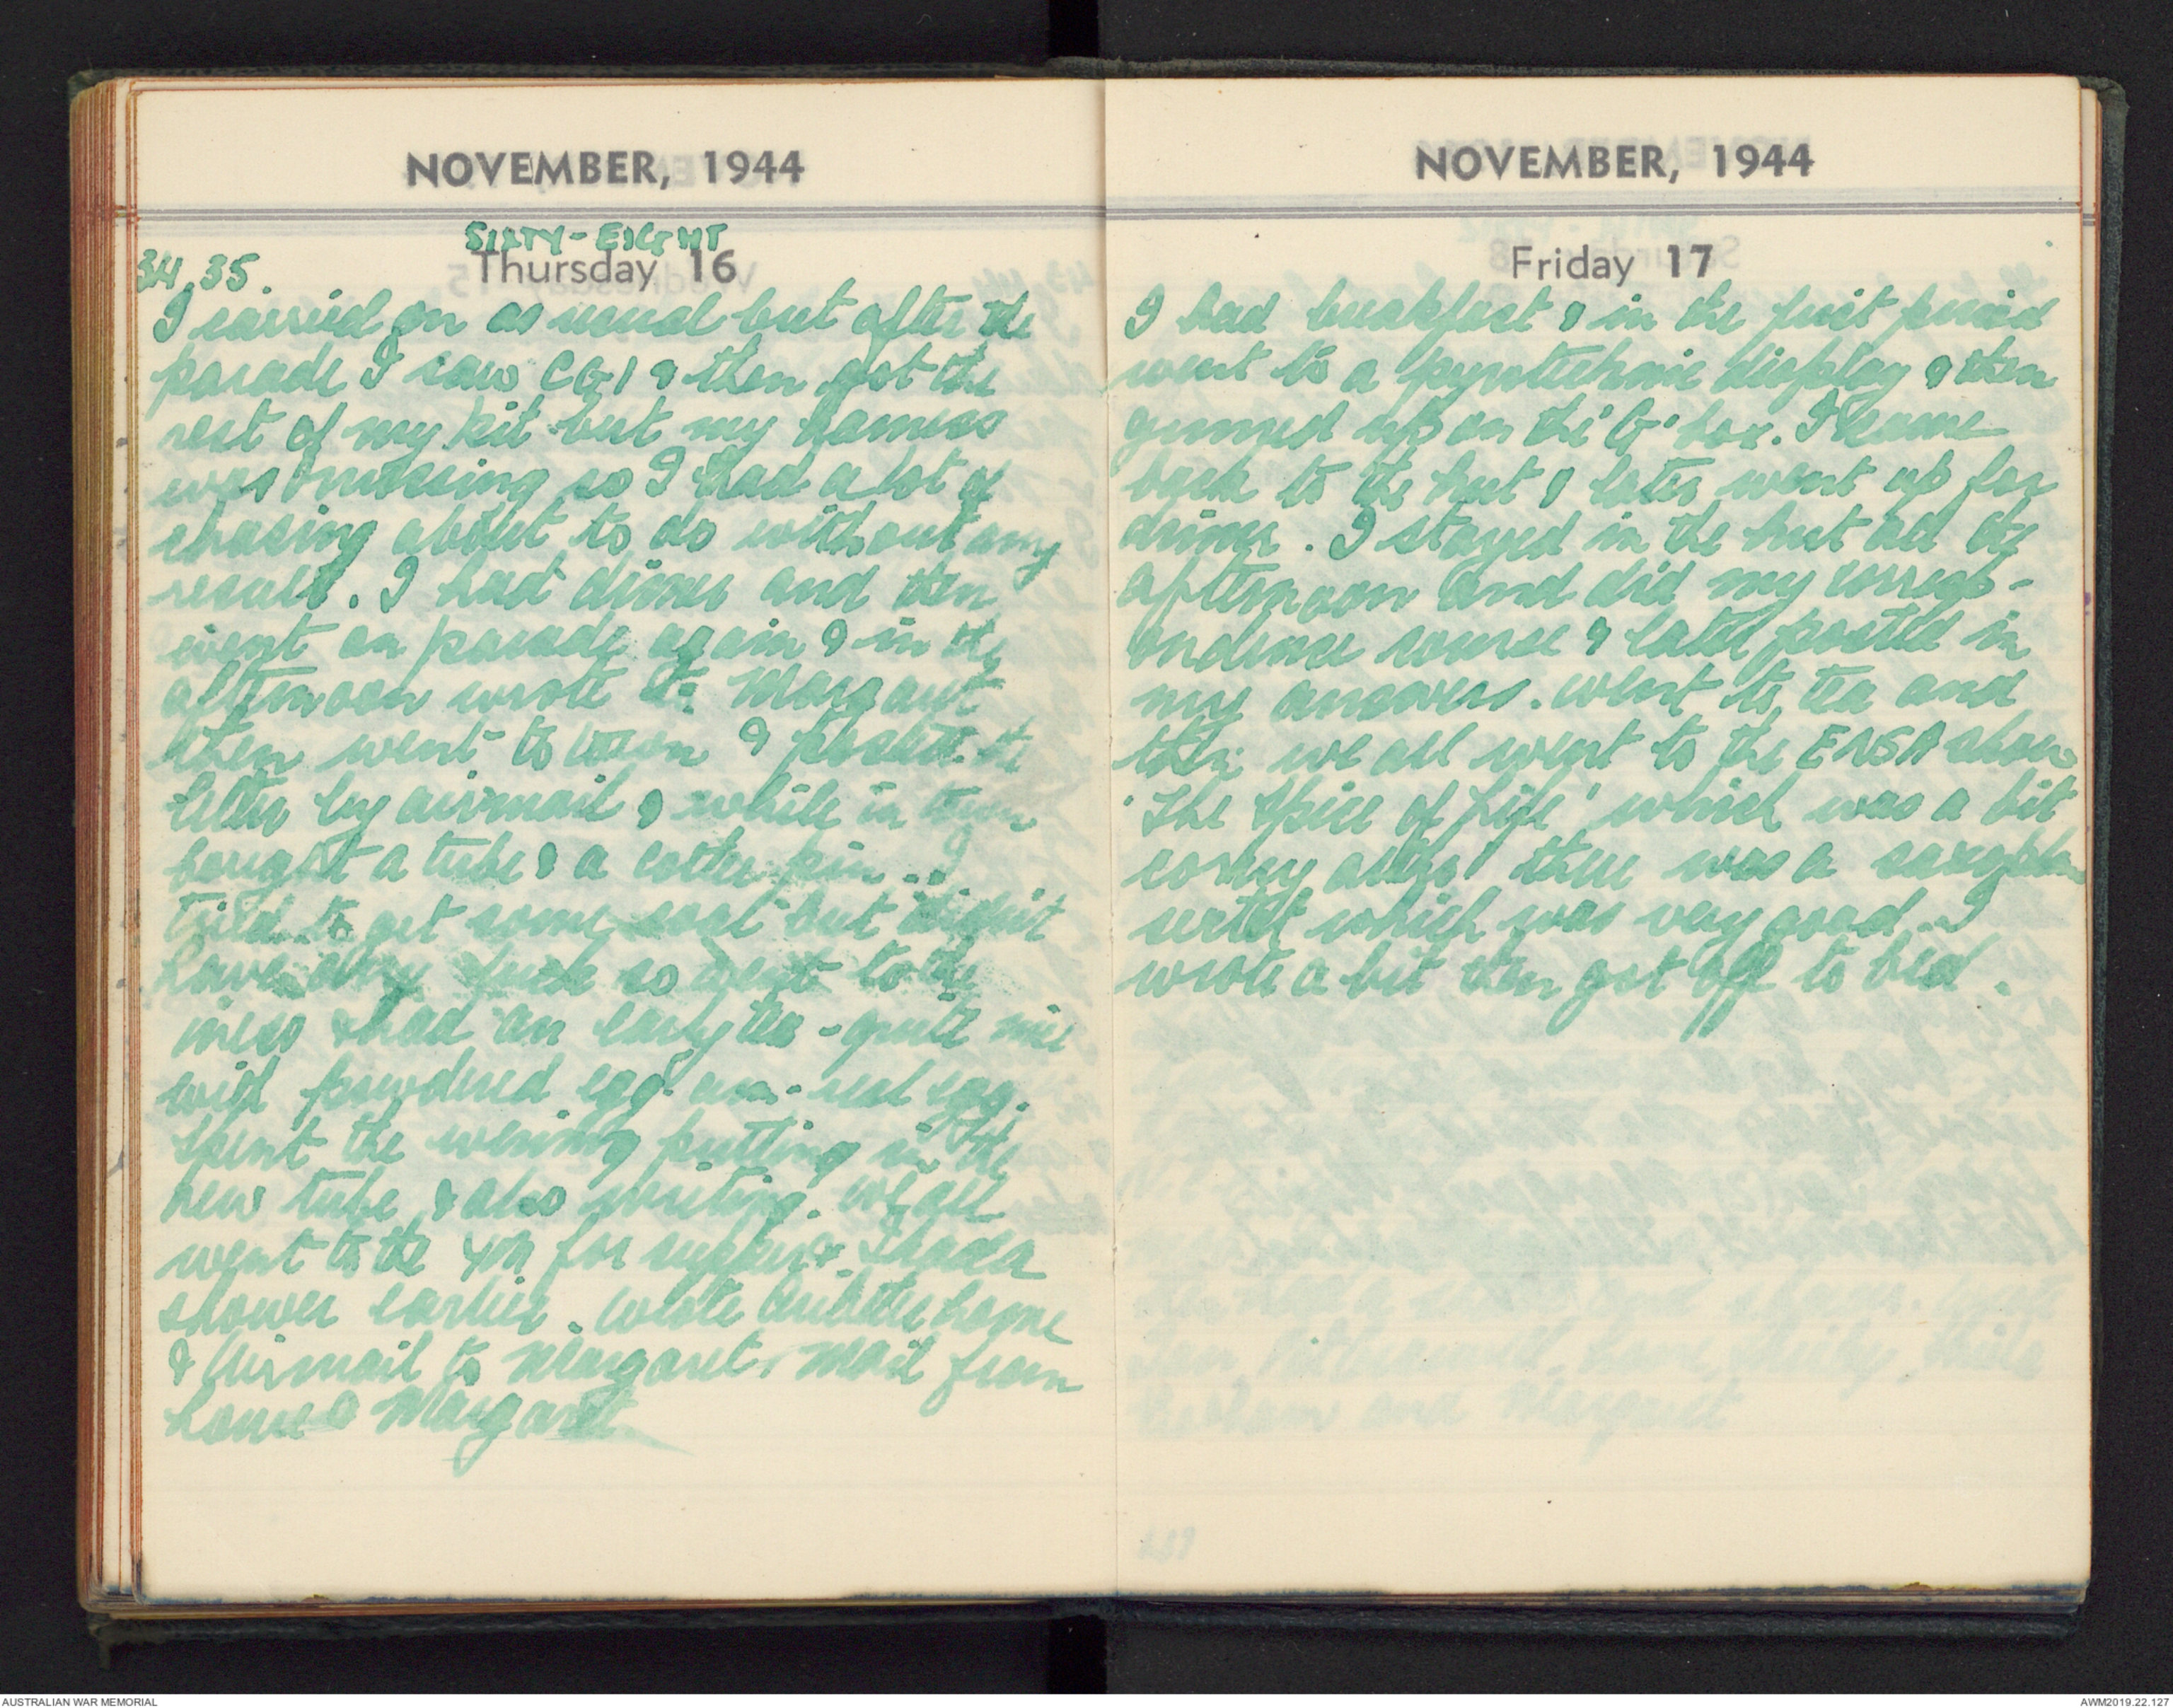 NOVEMBER, 1944
SIXTY-EIGHT
Thursday 16
34, 35.
I carried on as usual but after the
parade I saw CGI & then got the
rest of my kit but my harness
was missing so I had a lot of
chasing about to do without any
result. I had dinner and then
went on parade again & in the
afternoon wrote to Margaret
then went to town & posted the
letter by airmail & while in town
bought a tube & a cotter pin. I
tried to get some but didn't
have any luck so went to the
mess & had an early tea - quite nice
with powdered egg - real egg.
Spent the evening putting in the
new tube & also writing. We all
went to the YM for supper & I had a
shower earlier. Wrote home
& Airmail to Margaret. Mail from
home & Margaret.
NOVEMBER, 1944
Friday 17
I had breakfast & in the first period
went to a pyrotechnic display & then
genned up on the 'G' box. I came
back to the hut & later went up for
dinner. I stayed in the hut all the
afternoon and did my corresp-
ondence course & later posted in
my answers. Went to tea and
then we all went to the ENSA show
'The Spice of Life' which was a bit
corny altho' there was a saxophone
sextet which was very good. I
wrote a bit then got off to bed.
AUSTRALIAN WAR MEMORIAL
AWM2019.22.127